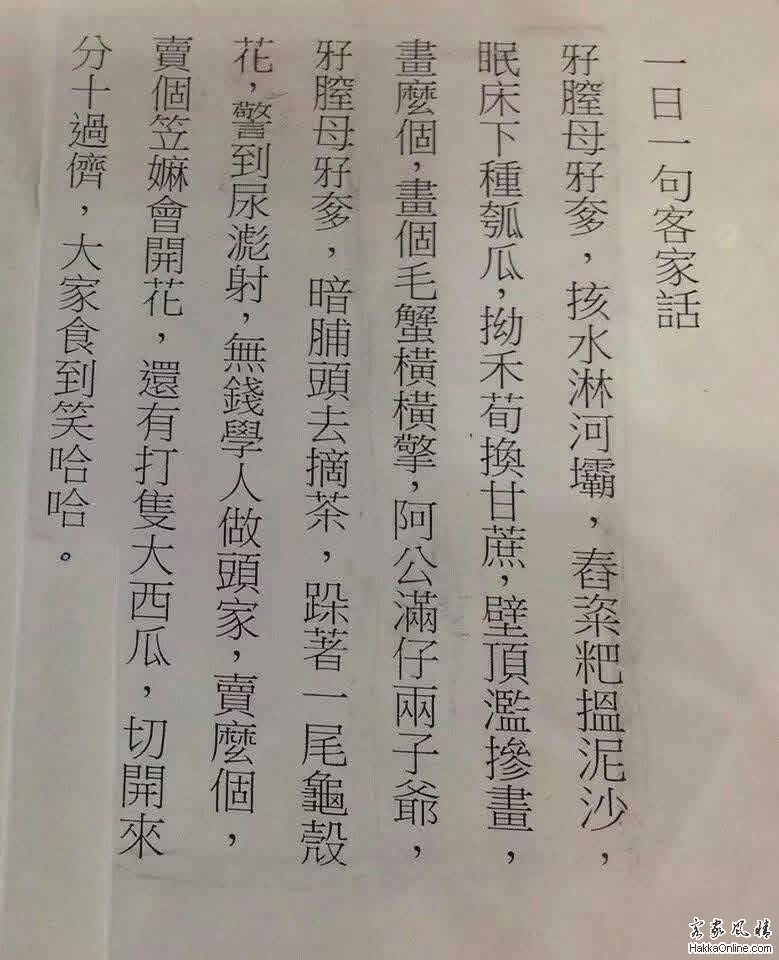 一日一句客家話
牙膣母牙爹，㧡水淋河壩，舂粢粑搵泥沙，
眠床下種瓠瓜，拗禾荀換甘蔗，壁頂濫摻畫，
畫麼個，畫個毛蟹橫橫擎，阿公滿仔兩子爺，
牙膣母牙爹，暗脯頭去摘茶，跺著一尾龜殼
花，警到尿漉射，無錢學人做頭家，賣麼個，
賣個笠嫲會開花，還有打隻大西瓜，切開來
分十過儕，大家食到笑哈哈。
客家風情
HakkaOnline.com